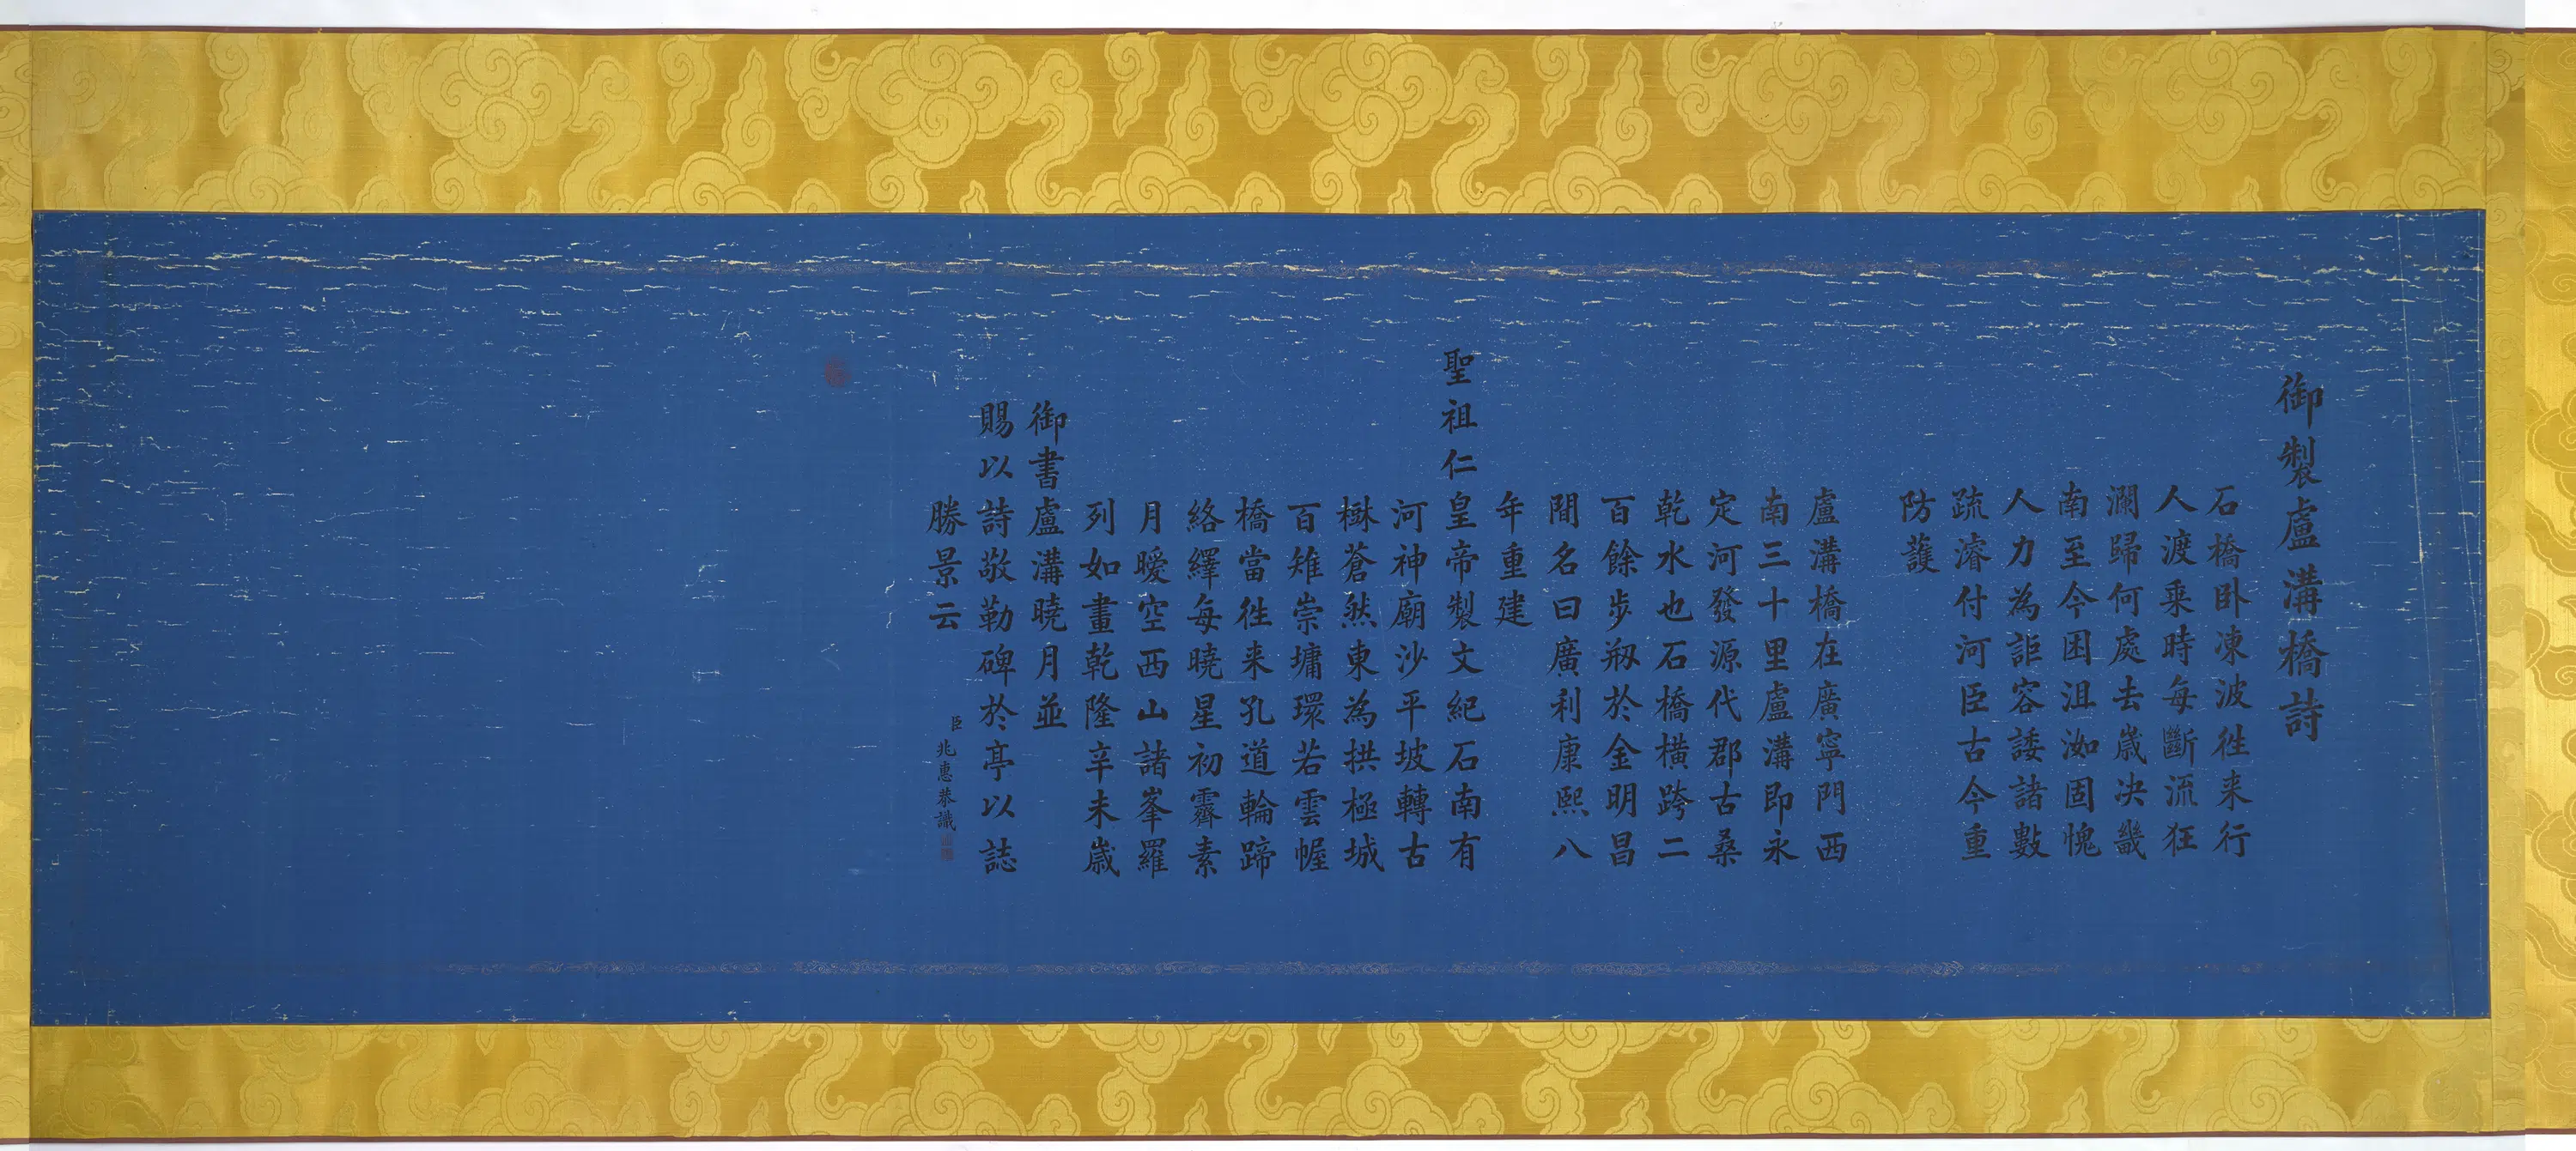 御製盧溝橋詩
石橋卧凍波徃来行
人渡乗時每斷流狂
瀾歸何處去歲决畿
南至今困沮洳固愧
人力為詎容諉諸數
疏濬付河臣古今重
防護
盧溝橋在廣寧門西
南三十里盧溝即永
定河發源代郡古桑
乾水也石橋橫跨二
百餘步剏於金明昌
間名曰廣利康熙八
年重建
聖祖仁皇帝製文紀石南有
河神廟沙平坡轉古
樹蒼然東為拱極城
百雉崇墉環若雲幄
橋當徃来孔道輪蹄
絡繹每曉星初霽素
月曖空西山諸峯羅
列如畫乾隆辛未歲
御書盧溝曉月並
賜以詩敬勒碑於亭以誌
勝景云
臣兆惠恭識